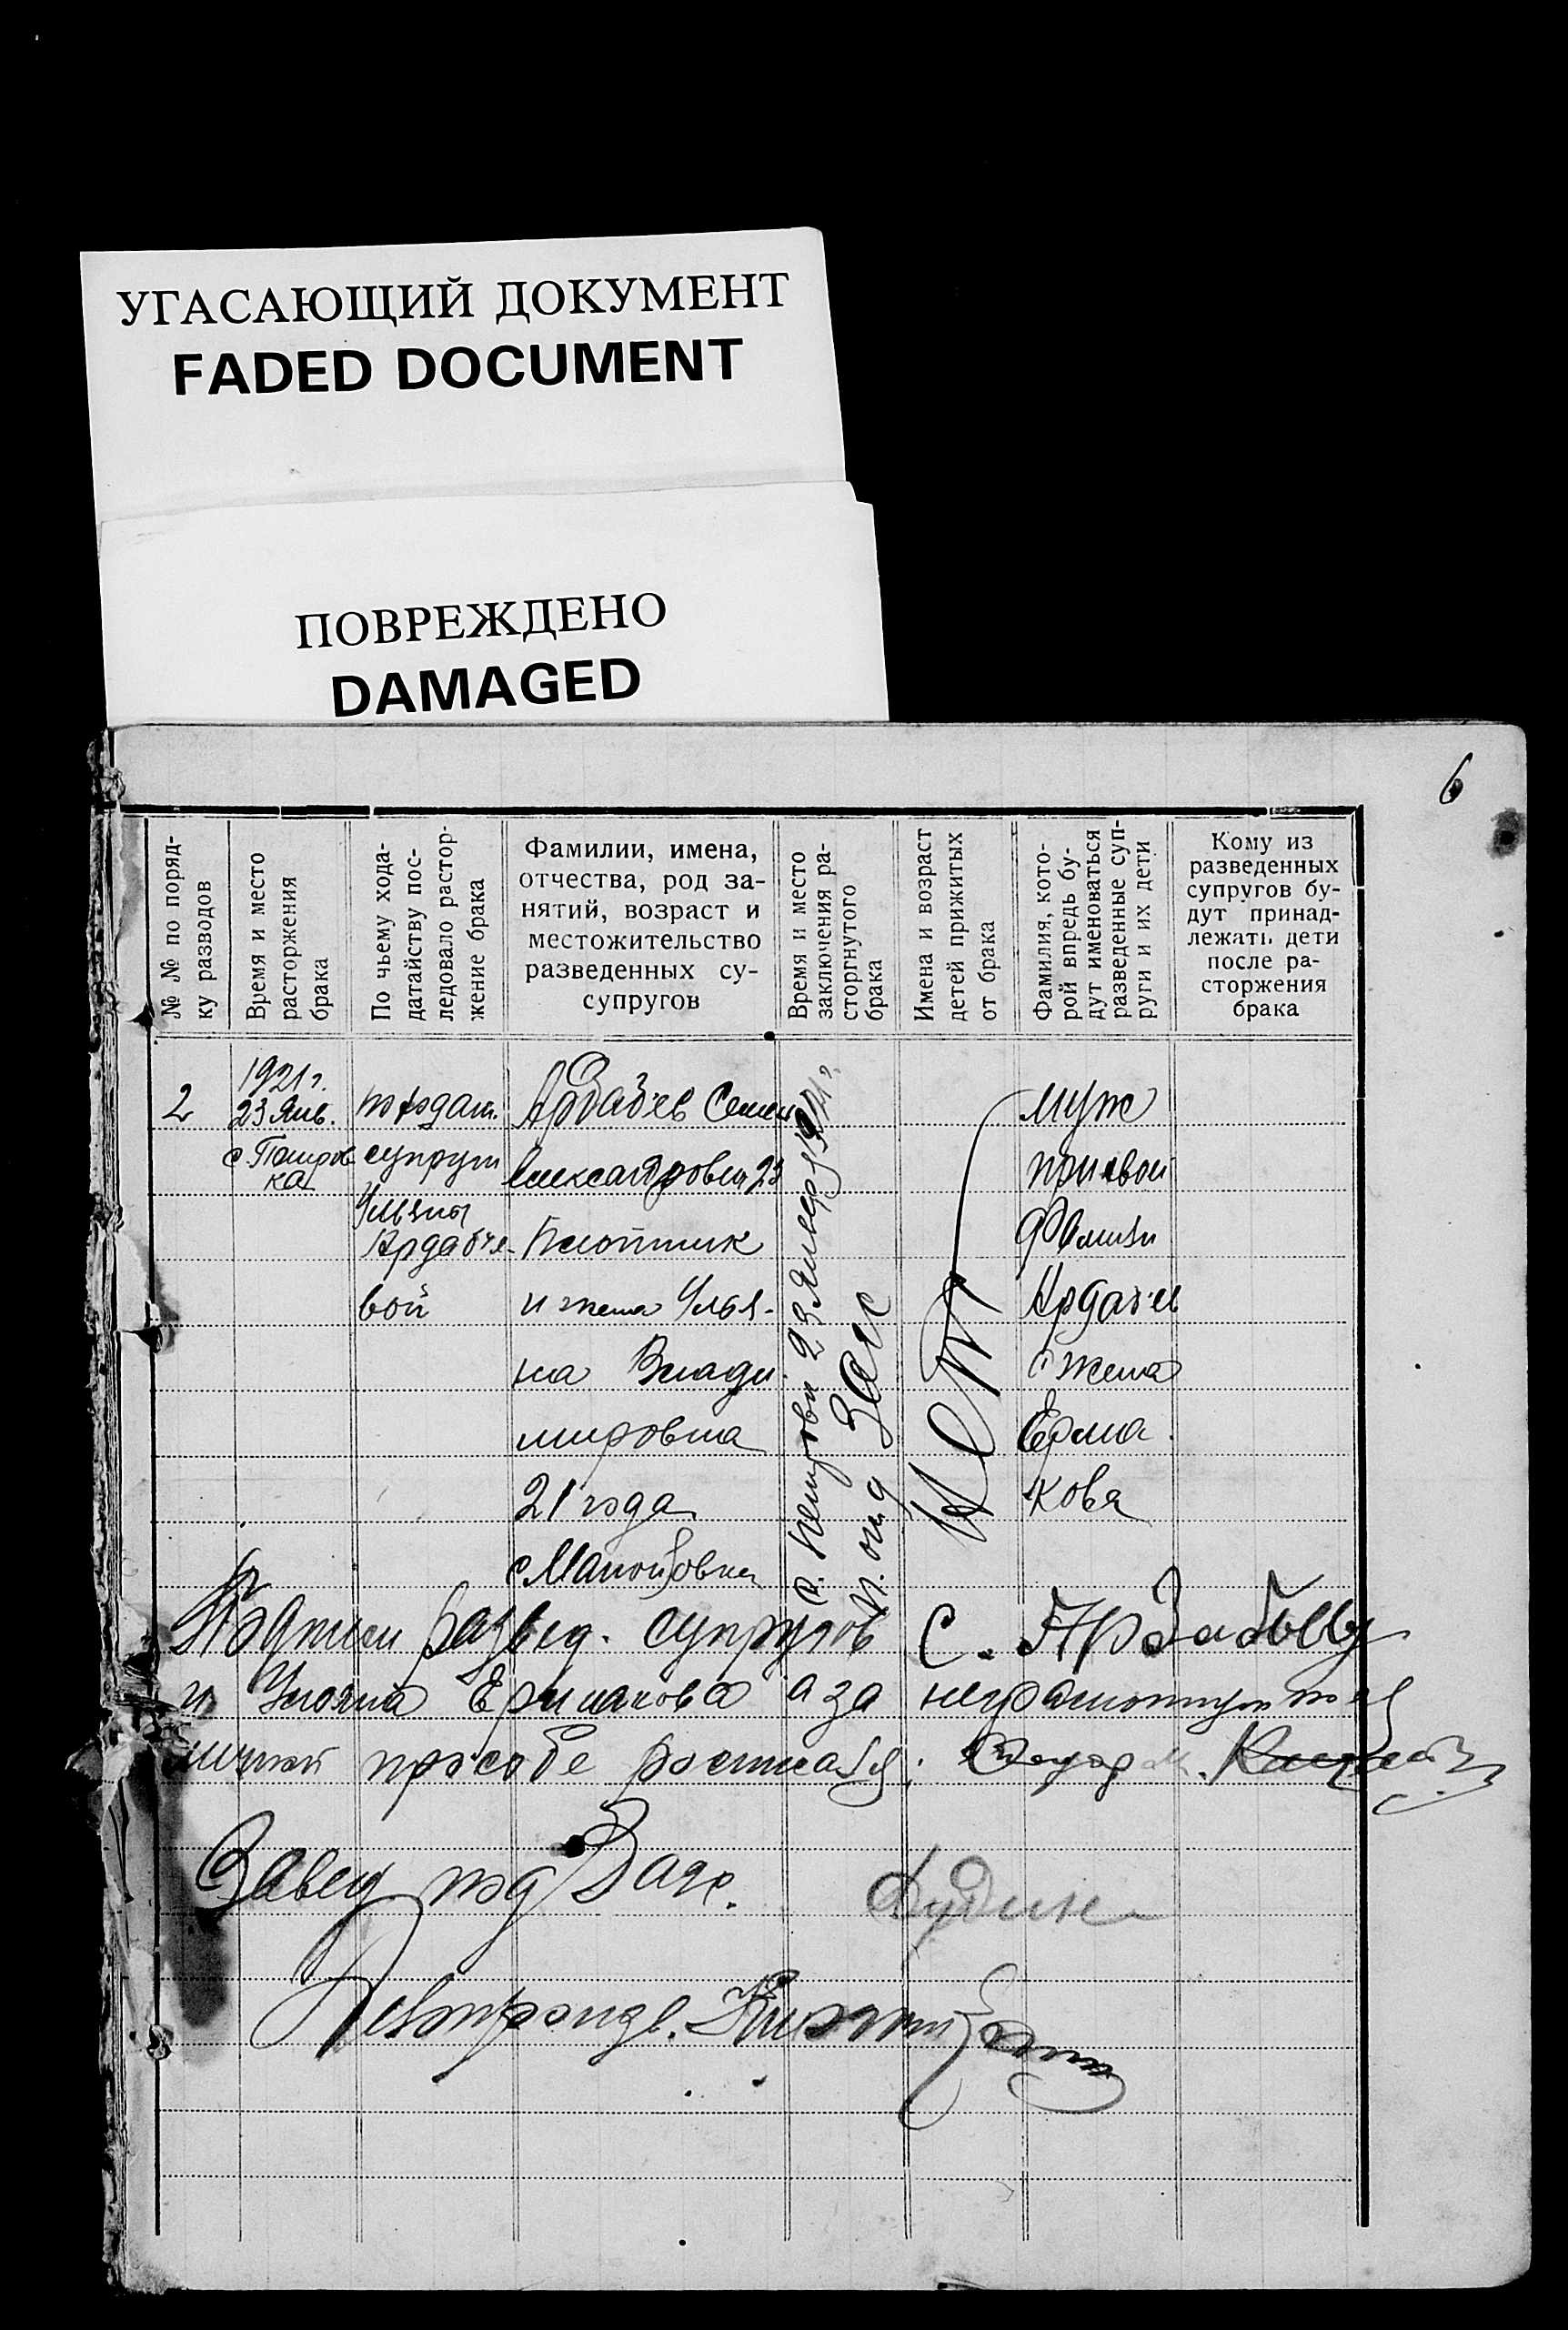 УГАСАЮЩИЙ ДОКУМЕНТ
FADED DOCUMENT
ПОВРЕЖДЕНО
DAMAGED
6
№ № по поряд-
ку разводов
Время и место
расторжения
брака
По чьему хода-
датайству пос-
ледовало растор-
жение брака
Фамилии, имена,
отчества, род за-
нятий, возраст и
местожительство
разведенных су-
супругов
Время и место
заключения ра-
сторгнутого
брака
Имена и возраст
детей прижитых
от брака
Фамилия, кото-
рой впредь бу-
дут именоваться
разведенные суп-
руги и их дети
Кому из
разведенных
супругов бу-
дут принад-
лежать дети
после ра-
сторжения
брака
2
1921 г.
23 Янв.
с.
ка
по ходат.
супруги
Ульяны
Ардабье-
вой
Ардабьев Семен
Александрович 23
Плотник
и жена Улья-
на Влади
мировна
21 года
с.
23 Января
п. отд Загс
Нет
муж
при своей
фамили
Ардабьев
жена
Ерма
кова
Подписи развед. супругов С. Ардабьев
и Ульяна Ермакова а за неграмотную по ея
личной прозьбе
Завед под Загс.
Делопроизв.